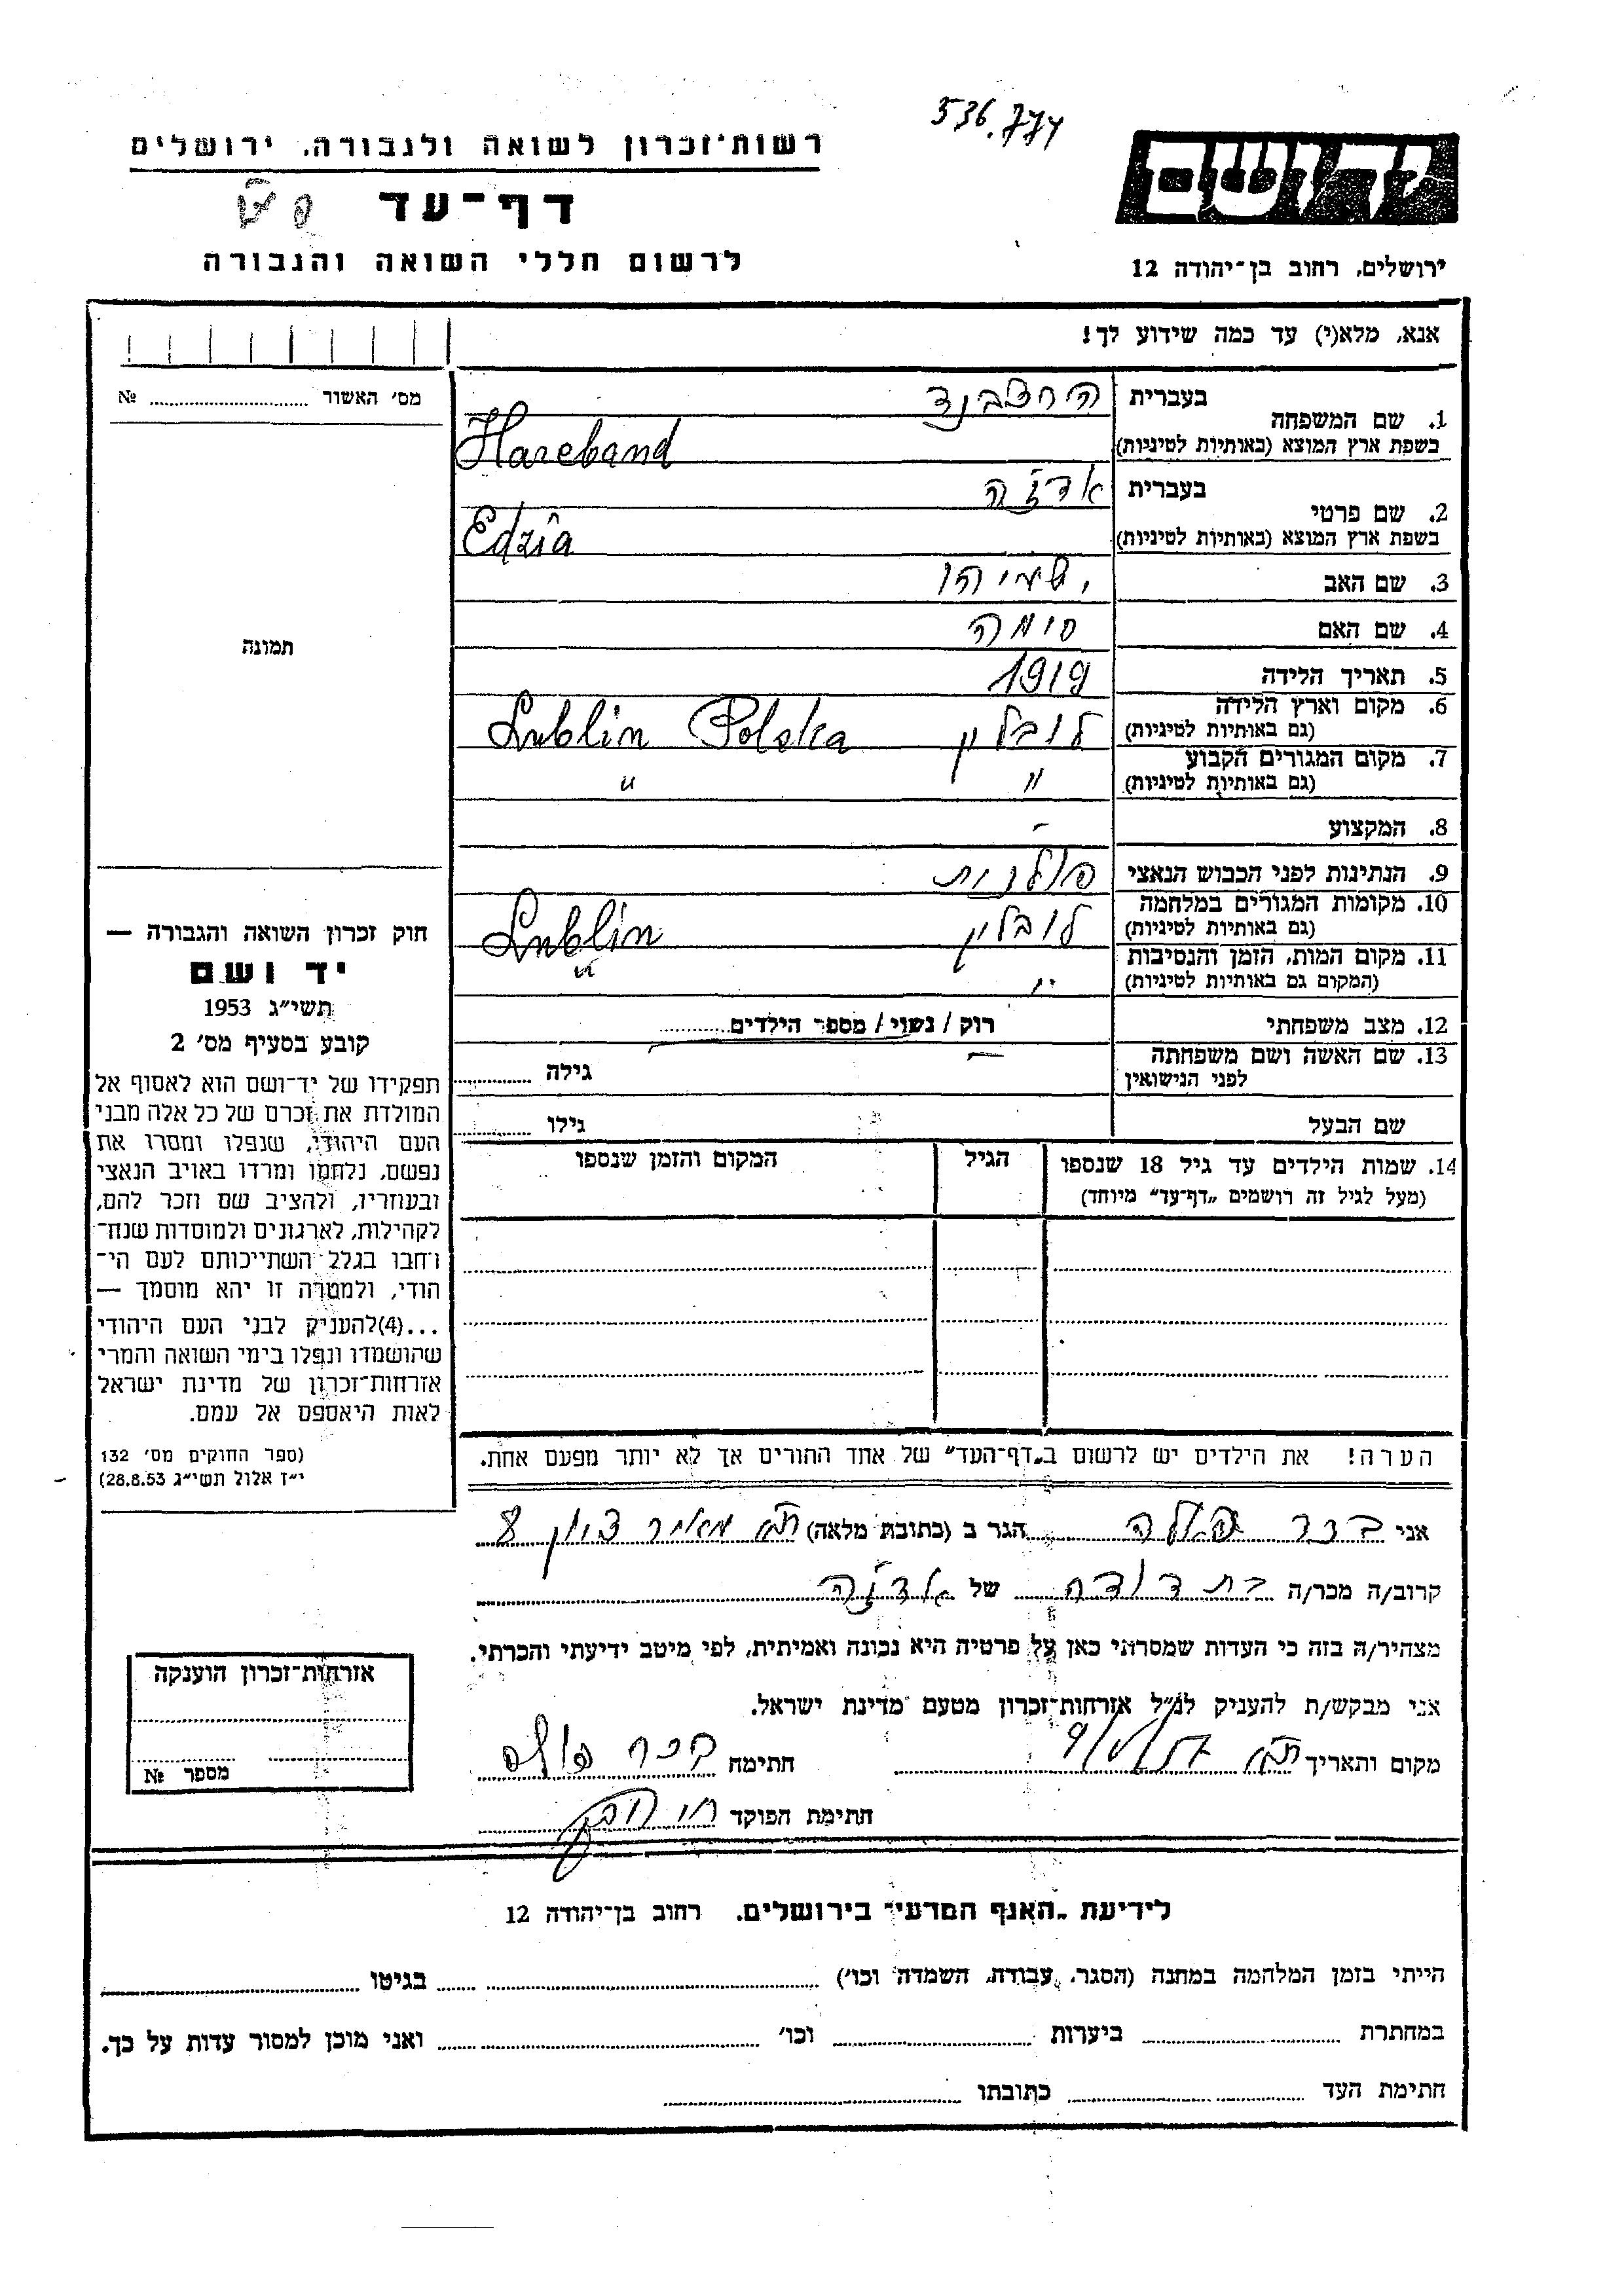 536.774
רשות־זכרון לשואה ולגבורה. ירושלים
דף־עד
לרשום חללי השואה והגבורה
ידושם
ירושלים, רחוב בן־יהודה 12
אנא, מלא(י) עד כמה שידוע לך!
מס׳ האשור № 
1. שם המשפחה
בעברית
בשפת ארץ המוצא (באותיות לטיניות)
Hareband
2. שם פרטי
בעברית אדזה
בשפת ארץ המוצא (באותיות לטיניות) Edzia
3. שם האב ישעיהו
4. שם האם סומה
5. תאריך הלידה 1919
6. מקום וארץ הלידה
(גם באותיות לטיניות)
לובלין Lublin Polska
7. מקום המגורים הקבוע
(גם באותיות לטיניות)
" "
8. המקצוע -
9. הנתינות לפני הכבוש הנאצי פולנית
10. מקומות המגורים במלחמה
(גם באותיות לטיניות)
לובלין Lublin
11. מקום המות, הזמן והנסיבות
(המקום גם באותיות לטיניות)
" "
12. מצב משפחתי רוק / נשוי / מספר הילדים
13. שם האשה ושם משפחתה
לפני הנישואין
— גילה
שם הבעל גילו
14. שמות הילדים עד גיל 18 שנספו
(מעל לגיל זה רושמים „דף־עד״ מיוחד)
הגיל
המקום והזמן שנספו
תמונה
חוק זכרון השואה והגבורה —
יד ושם
תשי״ג 1953
קובע בסעיף מס׳ 2
תפקידו של יד־ושם הוא לאסוף אל
המולדת את זכרם של כל אלה מבני
העם היהודי, שנפלו ומסרו את
נפשם, נלחמו ומרדו באויב הנאצי
ובעוזריו, ולהציב שם וזכר להם,
לקהילות, לארגונים ולמוסדות שנח־
רחבו בגלל השתייכותם לעם הי־
הודי, ולמטרה זו יהא מוסמך —
...(4)להעניק לבני העם היהודי
שהושמדו ונפלו בימי השואה והמרי
אזרחות־זכרון של מדינת ישראל
לאות היאספם אל עמם.
(ספר החוקים מס׳ 132
י״ז אלול תשי״ג 28.8.53)
הערה! את הילדים יש לרשום ב„דף־העד״ של אחד ההורים אך לא יותר מפעם אחת.
אני בכר פולה הגר ב (כתובת מלאה) ת״א מאיר 8
קרוב/ה מכר/ה בת דודה של אדזה
מצהיר/ה בזה כי העדות שמסרתי כאן על פרטיה היא נכונה ואמיתית, לפי מיטב ידיעתי והכרתי.
אני מבקש/ת להעניק לנ״ל אזרחות־זכרון מטעם מדינת ישראל.
מקום והתאריך ת״א חתימה בכר פולה
חתימת הפוקד
אזרחות־זכרון הוענקה
מספר №
לידיעת „האגף המדעי״ בירושלים. רחוב בן־יהודה 12
הייתי בזמן המלחמה במחנה (הסגר, עבודת, השמדה וכו׳) בגיטו
במחתרת ביערות וכו׳ ואני מוכן למסור עדות על כך.
חתימת העד כתובתו